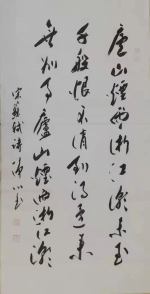 廬山煙雨浙江潮未至
千般恨不消到得還來
無別事廬山煙雨浙江潮
宋蘇軾詩